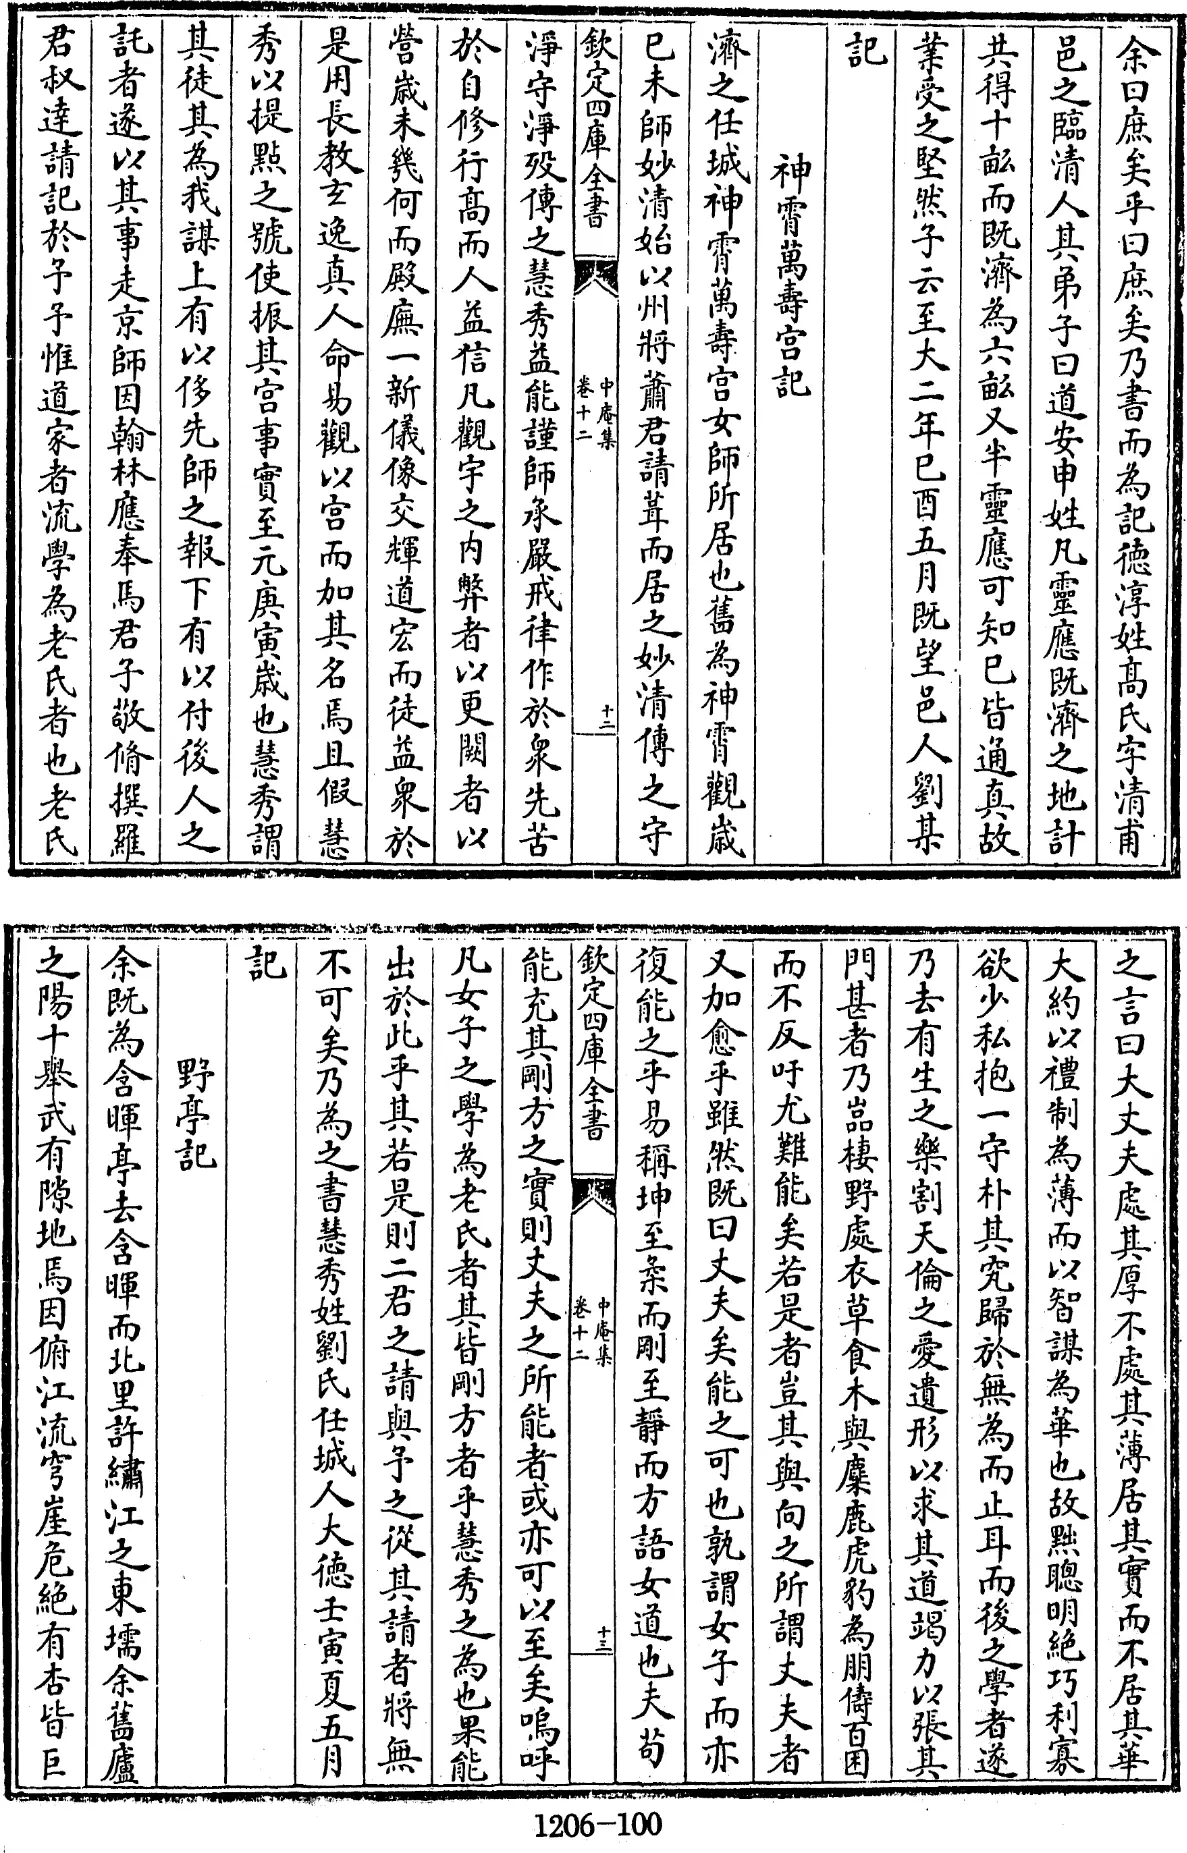 余曰庶矣乎曰庶矣乃書而為記德淳姓髙氏字清甫
邑之臨清人其弟子曰道安申姓凡靈應既濟之地計
共得十畝而既濟為六畝又半靈應可知已皆通真故
業受之堅然子云至大二年已酉五月既望邑人劉某
記
神霄萬壽宫記
濟之任城神霄萬壽宫女師所居也舊為神霄觀歳
已未師妙清始以州將蕭君請葺而居之妙清傳之守
欽定四庫全書
中庵集
卷十二
十二
淨守淨歿傳之慧秀益能謹師承嚴戒律作於衆先苦
於自修行髙而人益信凡觀宇之内弊者以更闕者以
營歳未幾何而殿廡一新儀像交輝道宏而徒益衆於
是用長教玄逸真人命易觀以宫而加其名焉且假慧
秀以提點之號使振其宫事實至元庚寅歳也慧秀謂
其徒其為我謀上有以侈先師之報下有以付後人之
託者遂以其事走京師因翰林應奉馬君子敬脩撰羅
君叔達請記於予予惟道家者流學為老氏者也老氏
之言曰大丈夫處其厚不處其薄居其實而不居其華
大約以禮制為薄而以智謀為華也故黜聰明絶巧利寡
欲少私抱一守朴其究歸於無為而止耳而後之學者遂
乃去有生之樂割天倫之愛遺形以求其道竭力以張其
門甚者乃嵒棲野處衣草食木與麋鹿虎豹為朋儔百困
而不反吁尤難能矣若是者豈其與向之所謂丈夫者
又加愈乎雖然既曰丈夫矣能之可也孰謂女子而亦
復能之乎易稱坤至柔而剛至靜而方語女道也夫苟
欽定四庫全書
中庵集
卷十二
十三
能充其剛方之實則丈夫之所能者或亦可以至矣嗚呼
凡女子之學為老氏者其皆剛方者乎慧秀之為也果能
出於此乎其若是則二君之請與予之從其請者將無
不可矣乃為之書慧秀姓劉氏任城人大德壬寅夏五月
記
野亭記
余既為含暉亭去含暉而北里許繡江之東壖余舊廬
之陽十舉武有隙地焉因俯江流穹崖危絶有杏皆巨
1206-100